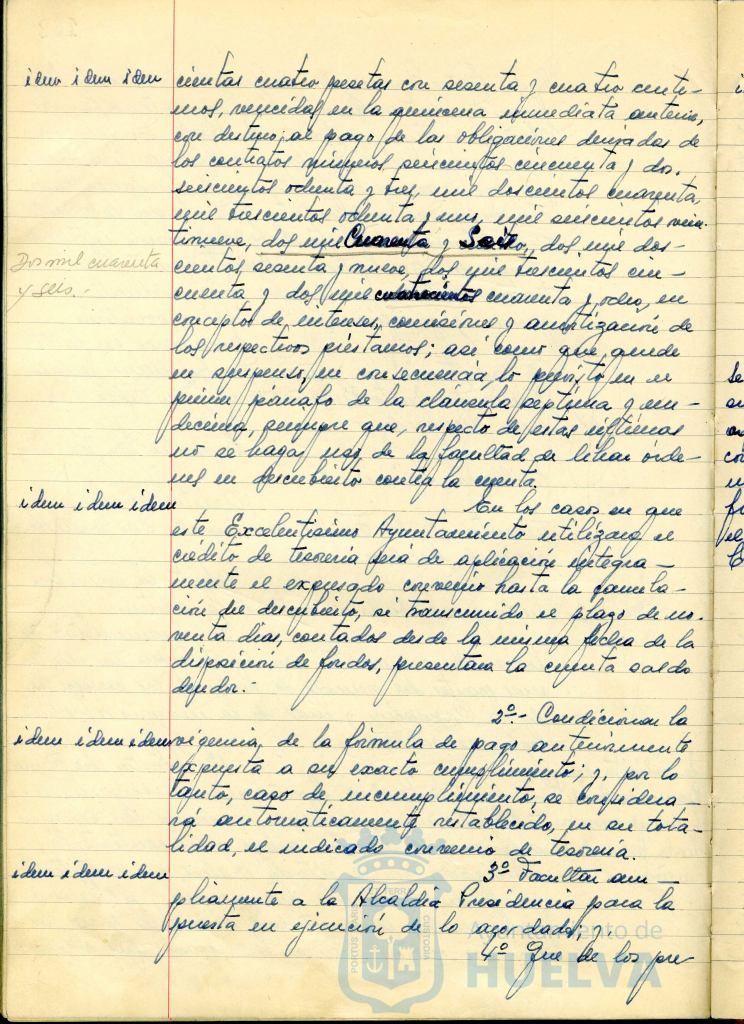 idem idem idem
cientas cuatro pesetas con sesenta y cuatro cénti-
mos, vencidas en la quincena inmediata anterior,
con destino al pago de las obligaciones derivadas de
los contratos números seiscientos cincuenta y dos,
seiscientos ochenta y tres, mil doscientos cuarenta,
mil trescientos ochenta y uno, mil seiscientos vein-
tinueve, dos mil Cuarenta y Seis, dos mil dos-
cientos sesenta y nueve, dos mil trescientos cin-
Dos mil cuarenta
y seis.-
cuenta y dos mil cuatrocientos cuarenta y ocho, en
concepto de intereses, comisiones y amortización de
los respectivos préstamos; así como que quede
en suspenso, en consecuencia, lo previsto en el
primer párrafo de la cláusula séptima y un-
décima, siempre que, respecto de estas últimas
no se haga uso de la facultad de librar órde-
nes en descubierto contra la cuenta.
idem idem idem
En los casos en que
este Excelentísimo Ayuntamiento utilizara el
crédito de tesorería será de aplicación íntegra-
mente el expresado convenio hasta la cancela-
ción del descubierto, si transcurrido el plazo de no-
venta días, contados desde la misma fecha de la
disposición de fondos, presentara la cuenta saldo
deudor.-
2º.- Condicionar la
idem idem idem
vigencia, de la fórmula de pago anteriormente
expuesta a su exacto cumplimiento; y, por lo
tanto, caso de incumplimiento, se considera-
rá automáticamente restablecido, en su tota-
lidad, el indicado convenio de tesorería.
idem idem idem
3º Facultar am-
pliamente a la Alcaldía Presidencia para la
puesta en ejecución de lo acordado, y.
4º Que de los pre
Ayuntamiento de
HUELVA